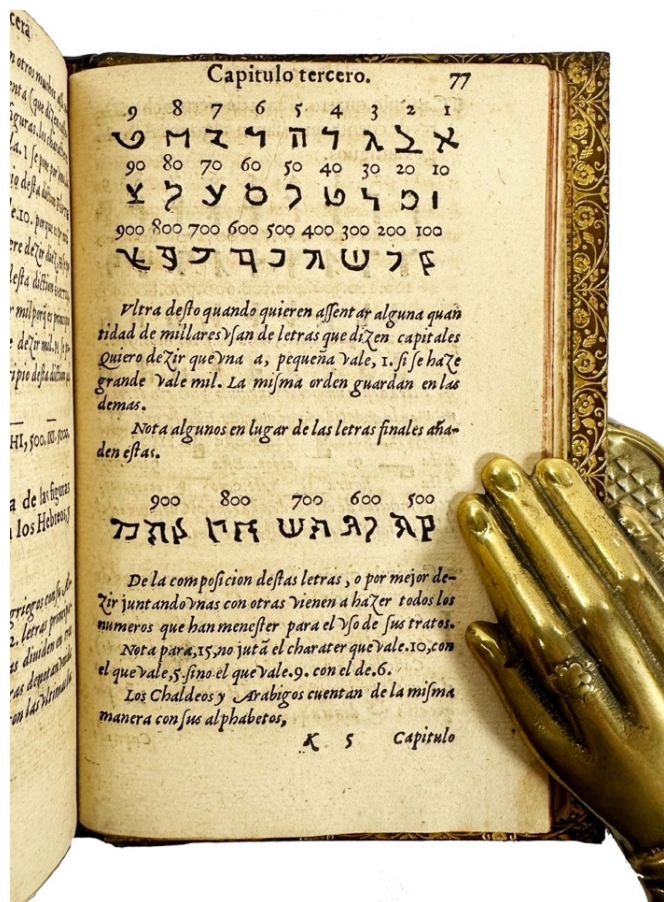 Capitulo tercero. 77
9 8 7 6 5 4 3 2 1
א ב ג ד ה ו ז ח ט
90 80 70 60 50 40 30 20 10
י כ ל מ נ ס ע פ צ
900 800 700 600 500 400 300 200 100
ק ר ש ת ך ם ן ף ץ
Vltra desto quando quieren assentar alguna quan
tidad de millares vsan de letras que dizen capitales
Quiero dezir que vna a, pequeña vale, 1. si se haze
grande vale mil. La misma orden guardan en las
demas.
Nota algunos en lugar de las letras finales aña-
den estas.
900 800 700 600 500
תק תר תש תת תתק
De la composicion destas letras, o por mejor de-
zir juntando vnas con otras vienen a hazer todos los
numeros que han menester para el vso de sus tratos.
Nota para,15,no jutã el charater que vale.10,con
el que vale,5.sino el que vale.9. con el de.6.
Los Chaldeos y Arabigos cuentan de la misma
manera con sus alphabetos,
K 5 Capitulo